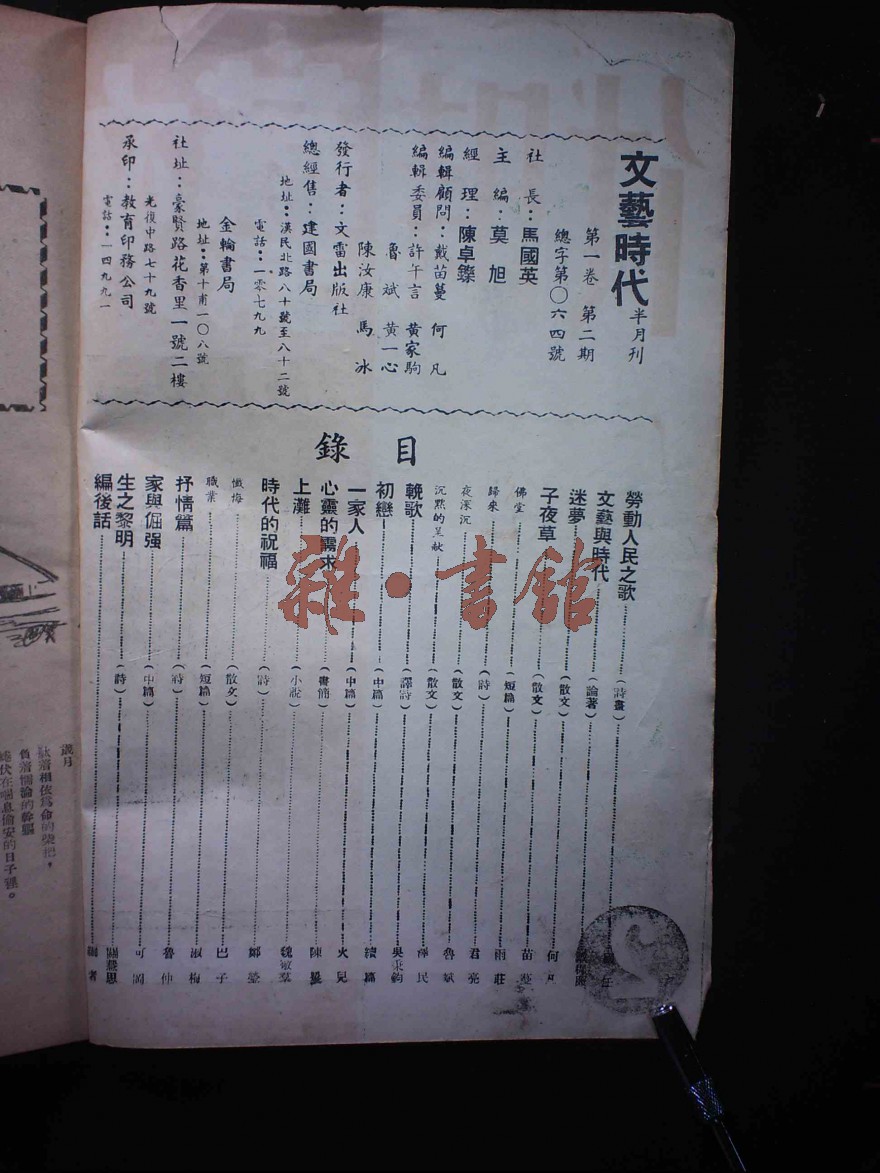 文藝時代 半月刊
第一卷 第二期
總字第〇六四號
社 長：馬國英
主 編：莫 旭
經 理：陳卓鑠
編輯顧問：戴苗蔓 何 凡
編輯委員：許午言 黃家駒
魯 斌 黃一心
陳汝康 馬 冰
發行者：文雷出版社
總經售：建國書局
地址：漢民北路八十號至八十二號
電話：一零七九九
金輪書局
地址：第十甫一〇八號
社址：豪賢路花香里一號二樓
光復中路七十九號
承印：教育印務公司
電話：一四九九一
目 錄
勞動人民之歌（詩畫）任
文藝與時代（論著）
迷夢（散文）何 凡
子夜草（散文）苗 蔓
佛堂（短篇）雨 莊
歸來（詩）君 亮
夜深沉（散文）魯 斌
沉默的呈献（散文）民
輓歌（譯詩）吳秉鈞
初戀（中篇）
一家人（中篇）火 兒
心靈的需求（書簡）陳
上灘（小說）魏敬羣
時代的祝福（詩）鄭 瑩
懺悔（散文）巴 子
職業（短篇）淑 梅
抒情篇（詩）魯 仲
家與倔强（中篇）可 岡
生之黎明（詩）
編後話 編 者
2
雜·書館
歲月
負着
的日子裡。